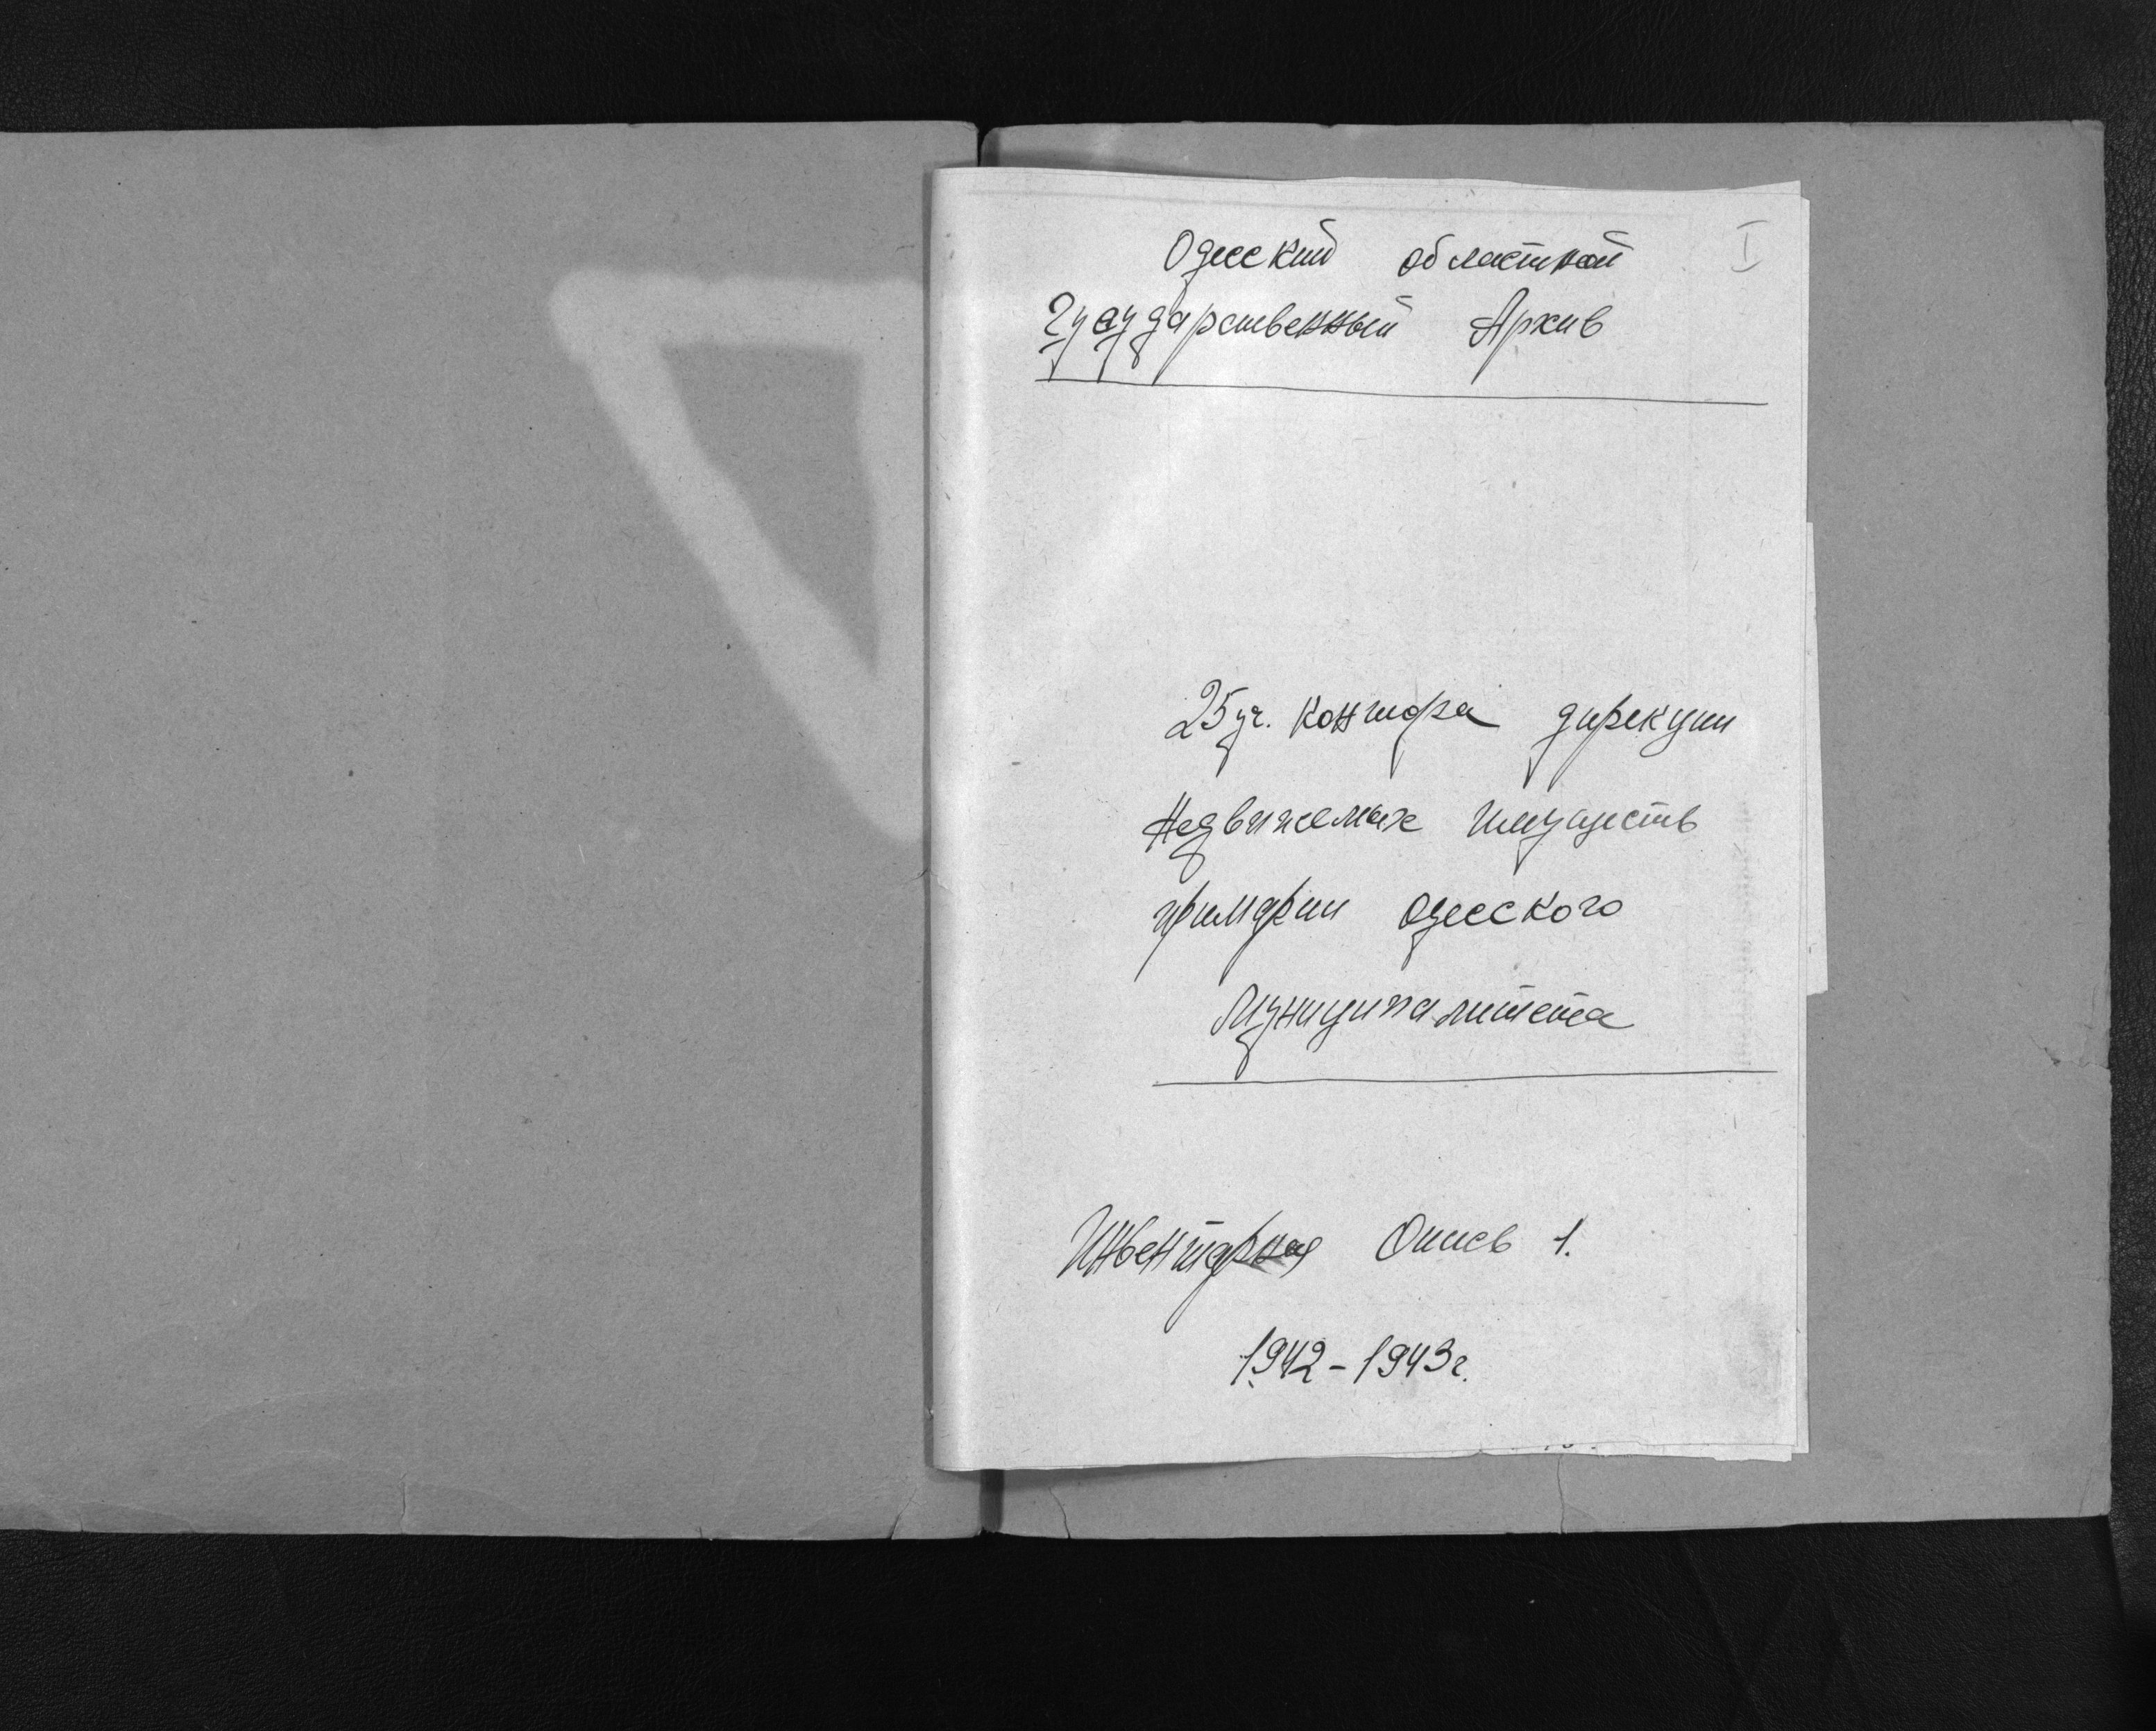 I
Одесский областной
Гусударственный Архив
25 уч. контора дирекции
Недвижемых Имуществ
примарии Одесского
Муниципалитета
Инвентарная Опись 1.
1942-1943г.